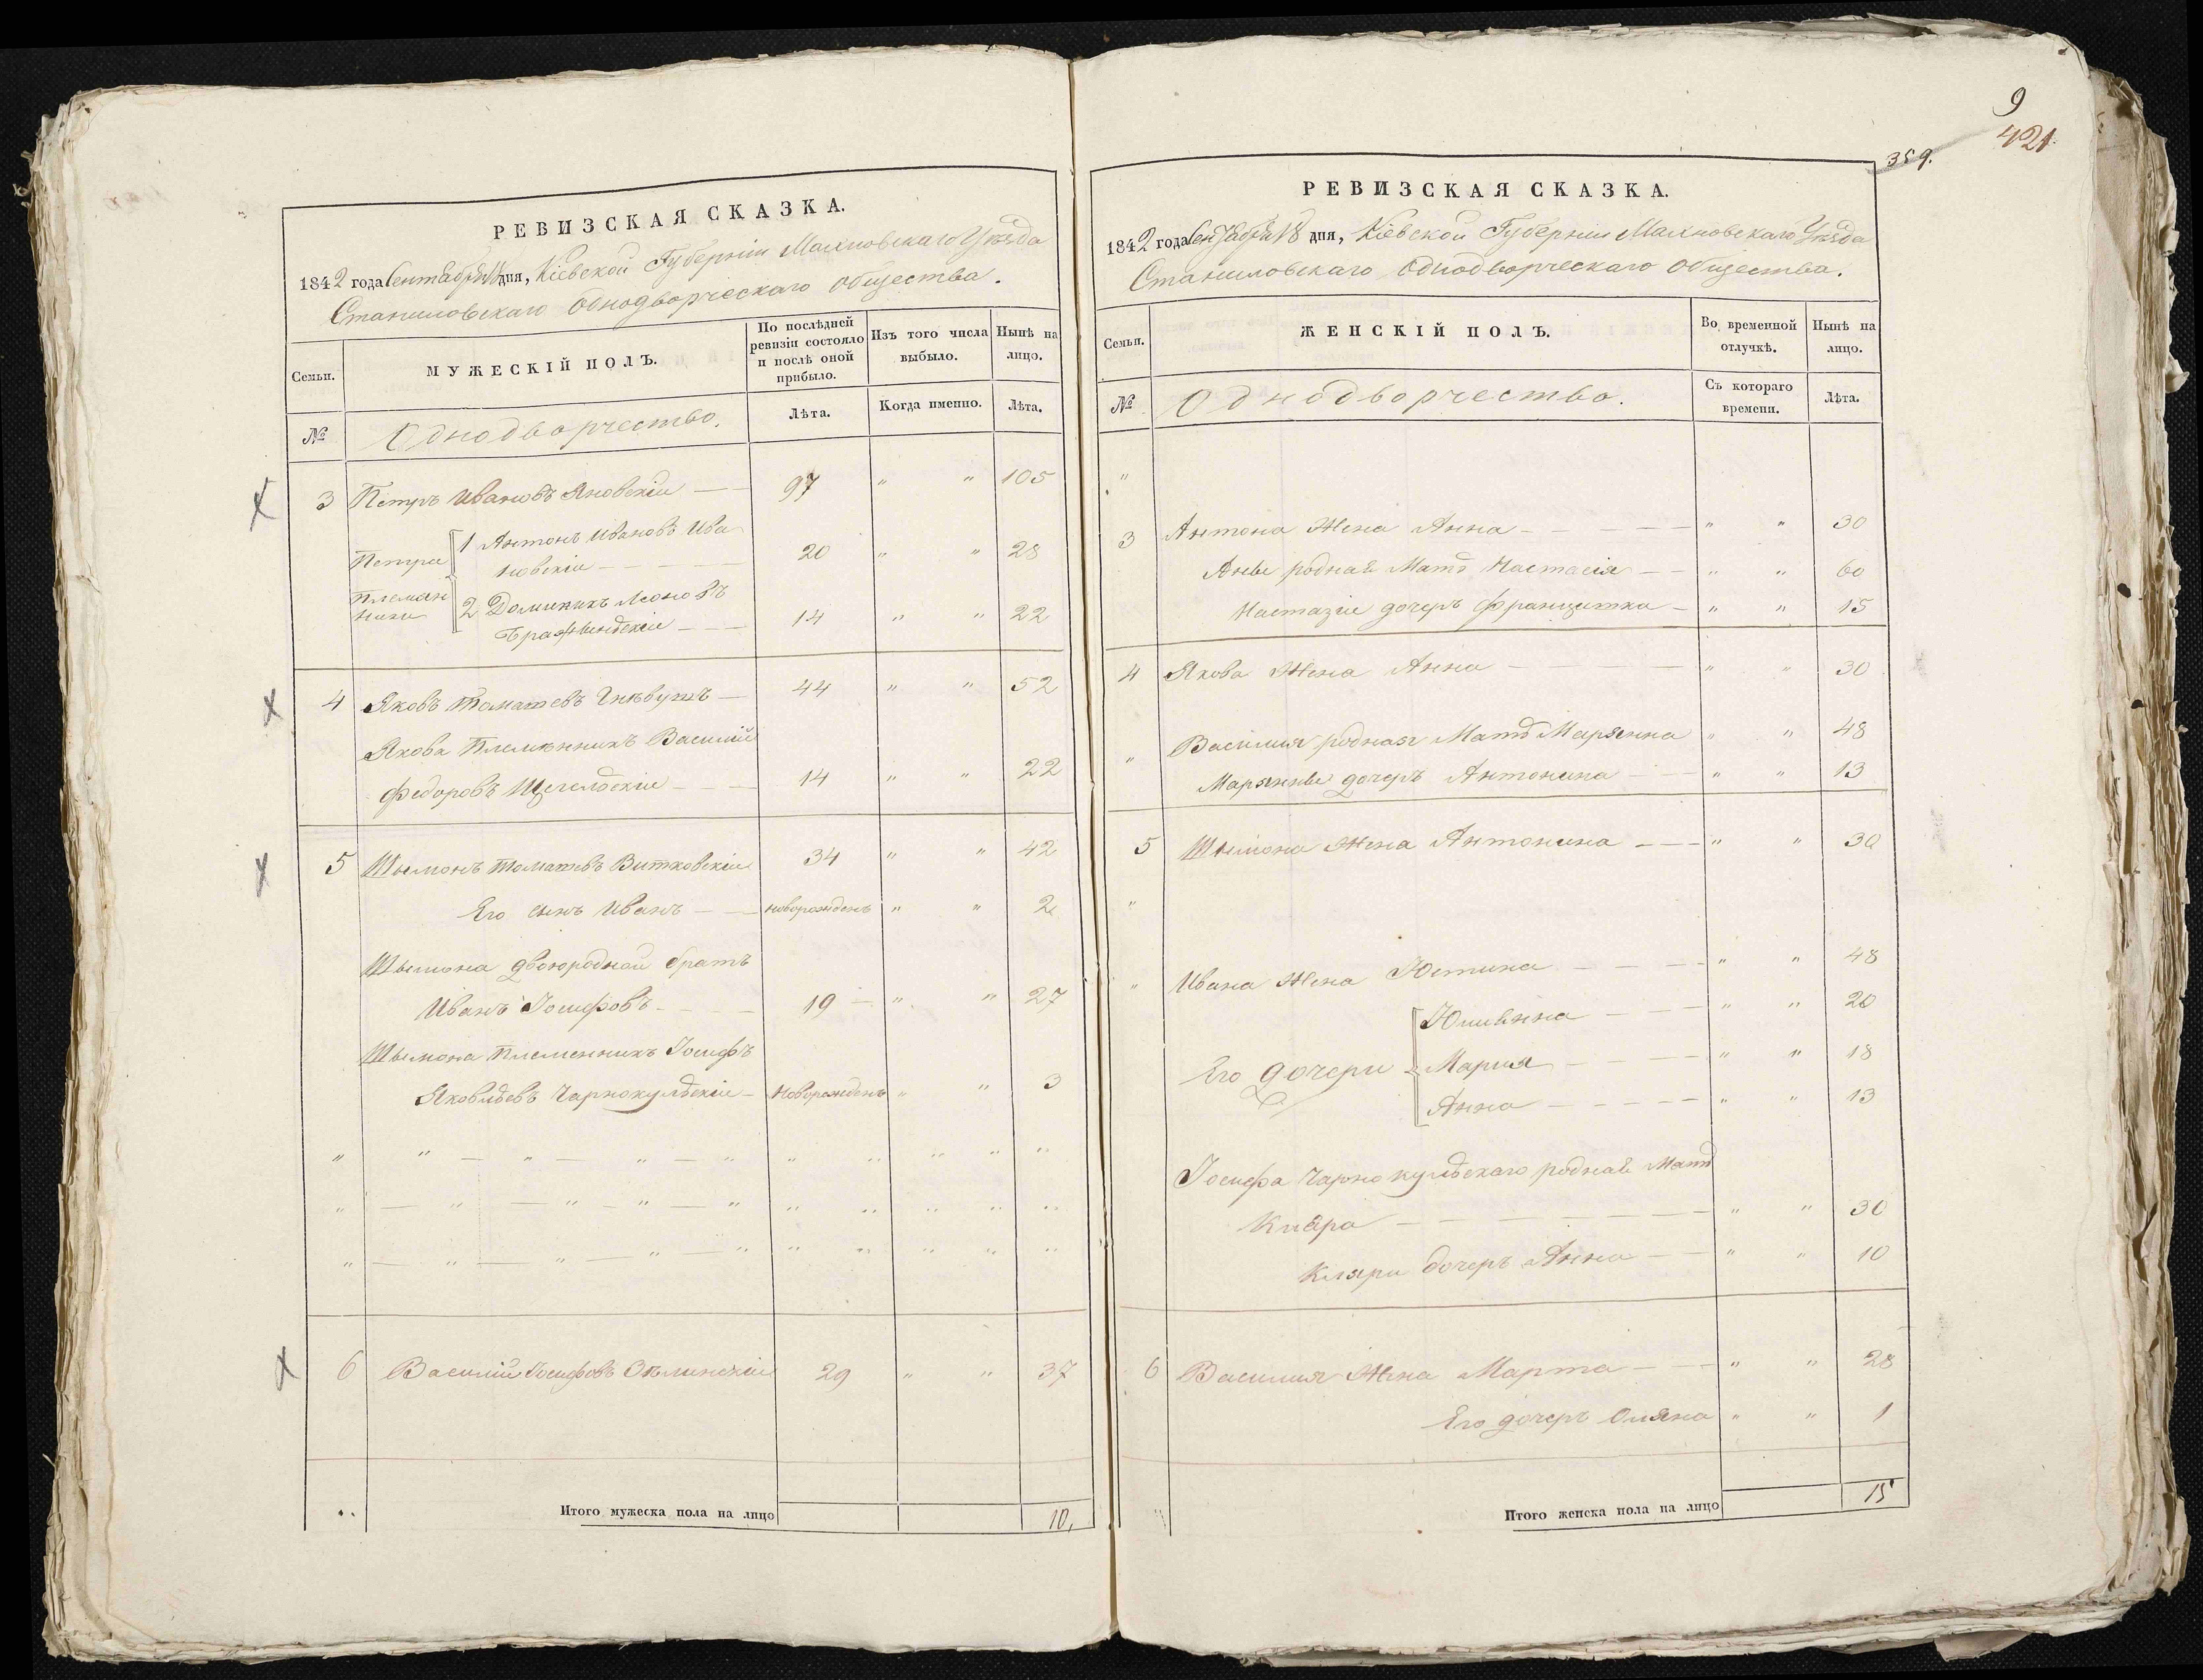 РЕВИЗСКАЯ СКАЗКА.
1842 года Сентября 18 дня, Кіевской Губерніи Махновскаго Уѣзда
Станиловскаго Однодворческаго Общества.
Семьи.
МУЖЕСКІЙ ПОЛЪ.
По послѣдней
ревизіи состояло
и послѣ оной
прибыло.
Изъ того числа
выбыло.
Нынѣ на
лицо.
№
Однодворчество.
Лѣта.
Когда именно.
Лѣта.
3 Петръ Ивановъ Яновскіи — 97 " " 105
Петра
племян
ники
1 Антонъ Ивановъ Ива
новскіи — 20 " " 28
2 Доминикъ Леоновъ
14 " " 22
4 Яковъ Томашевъ — 44 " " 52
Якова Племянникъ Василій
Федоровъ Щегельскіи — 14 " " 22
5 Шымонъ Томашевъ Витковскіи 34 " " 42
Его сынъ Иванъ — новорожденъ " " 2
Шымона двоюродной братъ
Иванъ Іосифовъ — 19 — " " 27
Шымона Племенникъ Іосифъ
Яковлевъ Чарнокульскіи — Новорожденъ " " 3
6 Василій Іосифовъ 29 " " 37
Итого мужеска пола на лицо 10.
9
421.
359.
РЕВИЗСКАЯ СКАЗКА.
1842 года Сентября 18 дня, Кіевской Губерніи Махновскаго Уѣзда
Станиловскаго Однодворческаго Общества.
Семьи.
ЖЕНСКІЙ ПОЛЪ.
Во временной
отлучкѣ.
Нынѣ на
лицо.
№
Однодворчество.
Съ котораго
времени.
Лѣта.
"
3 Антона Жена Анна — " " 30
Анны родная Мать Настасія — " " 60
Настазіи дочеръ Францишка — " " 15
4 Якова Жена Анна — " " 30
" Василия родная Мать Марянна " " 48
Марянны дочеръ Антонина — " " 13
5 Шымона Жена Антонина — " " 30
"
" Ивана Жена Юстина — " " 48
Его дочери
Юлианна — " " 20
Мария — " " 18
Анна — " " 13
Іосифа Чарнокульскаго родная Мать
Кляра — " " 30
Кляри дочеръ Анна — " " 10
6 Василия Жена Марта — " " 28
Его дочеръ Оляна " " 1
Итого женска пола на лицо 15